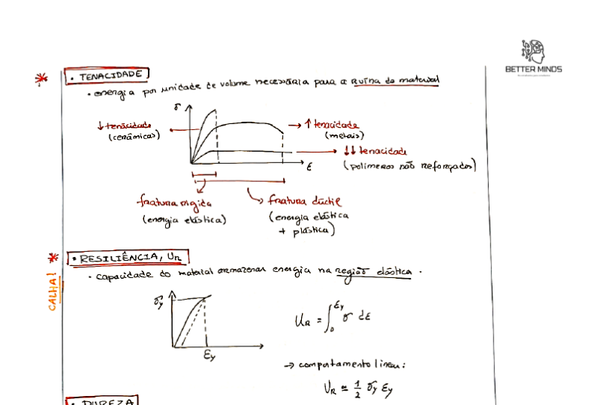 BETTER MINDS
* • TENACIDADE
• energia por unidade de volume necessária para a ruína do material
σ
ε
↓ tenacidade
(cerâmicas)
→ ↑ tenacidade
(metais)
→ ↓↓ tenacidade
(polímeros não reforçados)
fratura rígida
(energia elástica)
fratura dúctil
(energia elástica
+ plástica)
* • RESILIÊNCIA, UR
CALHA!
• capacidade do material armazenar energia na região elástica.
σy
εy
UR = ∫₀^εy σ dε
→ comportamento linear:
UR ≃ 1/2 σy εy
• DUREZA